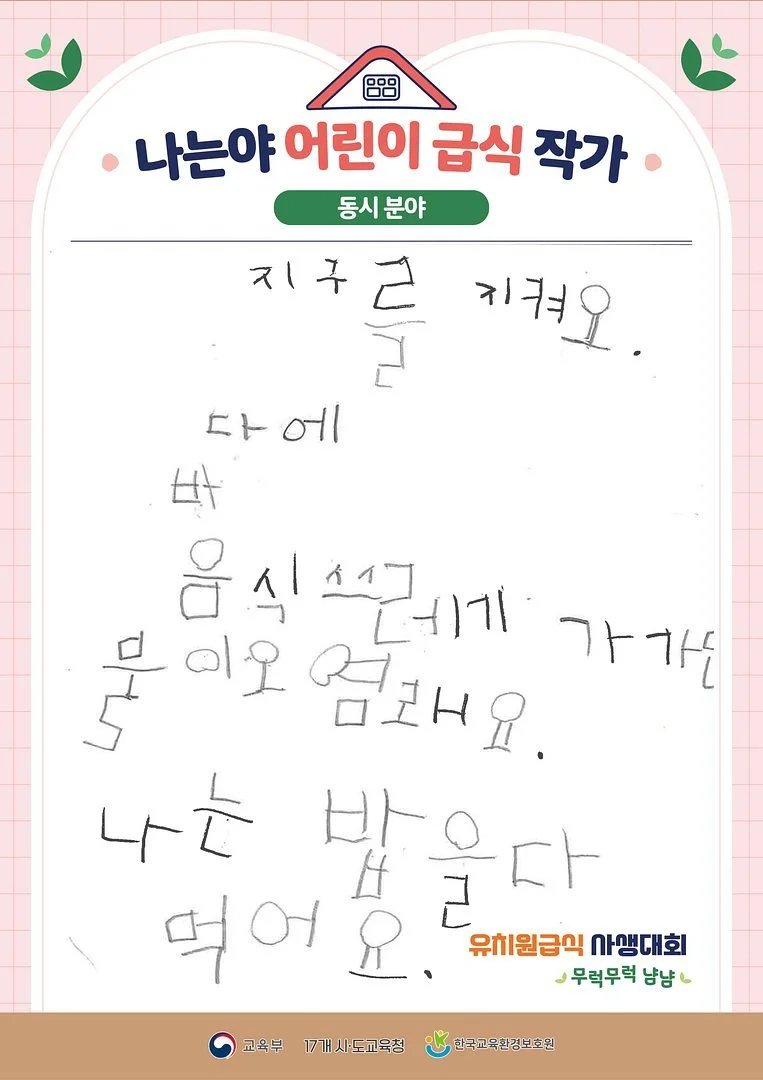 나는야 어린이 급식 작가
동시 분야
지구를 지켜요.
다에
바
음식쓰레기 가 가면
물이오염래요.
나는 밥을다
먹어요.
유치원급식 사생대회
무럭무럭 냠냠
교육부 17개 시·도교육청 한국교육환경보호원